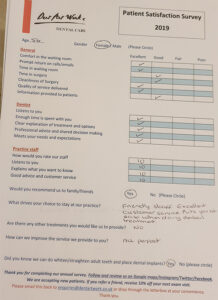 Dental Care
Patient Satisfaction Survey
2019
Age
Female / Male (Please Circle)
Excellent Good Fair Poor
General
Comfort in the waiting room
Prompt return on calls/emails
Time in waiting room
Time in surgery
Cleanliness of Surgery
Quality of service delivered
Information provided to patients
Dentist
Listens to you
Enough time is spent with you
Clear explanation of treatment and options
Professional advice and shared decision making
Meets your needs and expectations
Practice staff
How would you rate our staff 10
Listens to you 10
Explains what you want to know 10
Good advice and customer service 10
Would you recommend us to family/friends Yes No (Please Circle)
What drives your choice to stay at our practice? Friendly Staff Excellent
Customer Service
Are there any other treatments you would like us to provide? NO
How can we improve the service we provide to you?
Did you know we can do whiten/straighten adult teeth and place dental implants? Yes No (please circle)
Thank you for completing our annual survey. Follow and review us on Google maps/Instagram/Twitter/Facebook.
We are accepting new patients. If you refer a friend, receive 10% off your next exam visit.
Please email this back to or drop through the letterbox at your convenience.
Thank you